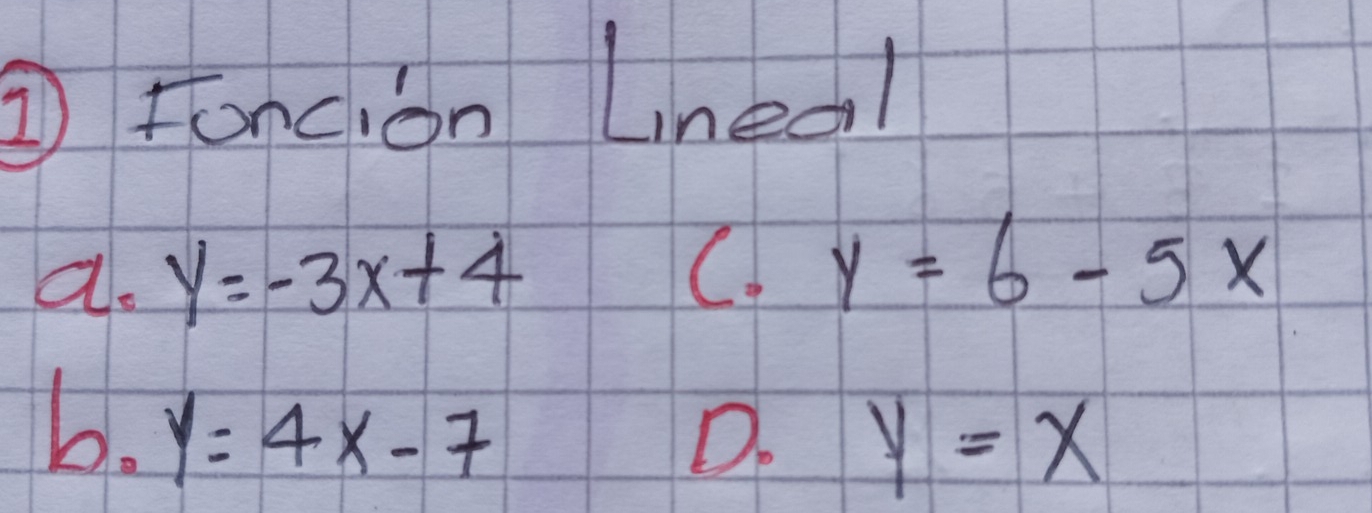 1 Función Lineal
a. y=-3x+4 C. y = 6 - 5x
b. y=4x-7 D. y = x